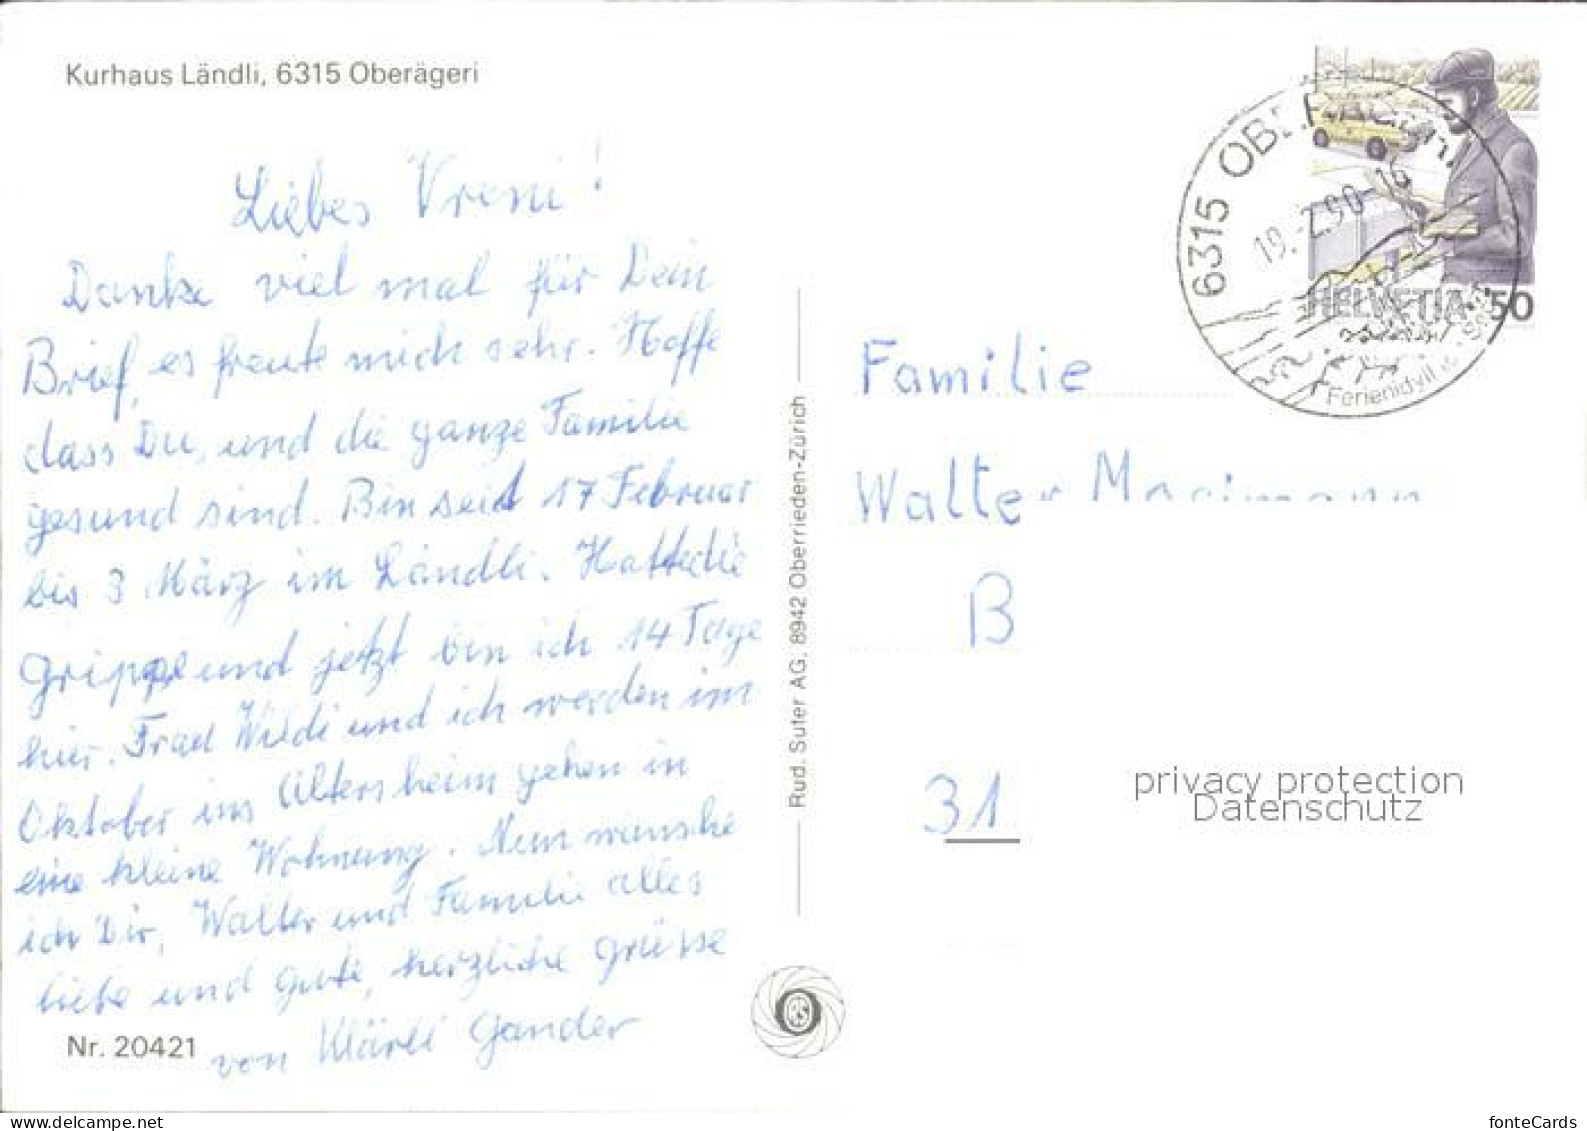 Kurhaus Ländli, 6315 Oberägeri
Liebes Vreni!
Danke viel mal für Dein
Brief, es freute mich sehr. Hoffe
dass Du, und die ganze Familie
gesund sind. Bin seid 17 Februar
bis 3 März im Ländli. Hatte die
Grippe und jetzt bin ich 14 Tage
hier. Frau Wildi und ich werden im
Oktober ins Altersheim gehen in
eine kleine Wohnung. Nun wünsche
ich Dir, Walter und Familie alles
liebe und gute, herzliche Grüsse
von Klärli Gander
Nr. 20421
Rud. Suter AG, 8942 Oberrieden-Zürich
6315 OBERÄGERI
19.-2.90-16
Ferienidyll
HELVETIA 50
Familie
Walter
B
31
privacy protection
Datenschutz
www.delcampe.net
fonteCards